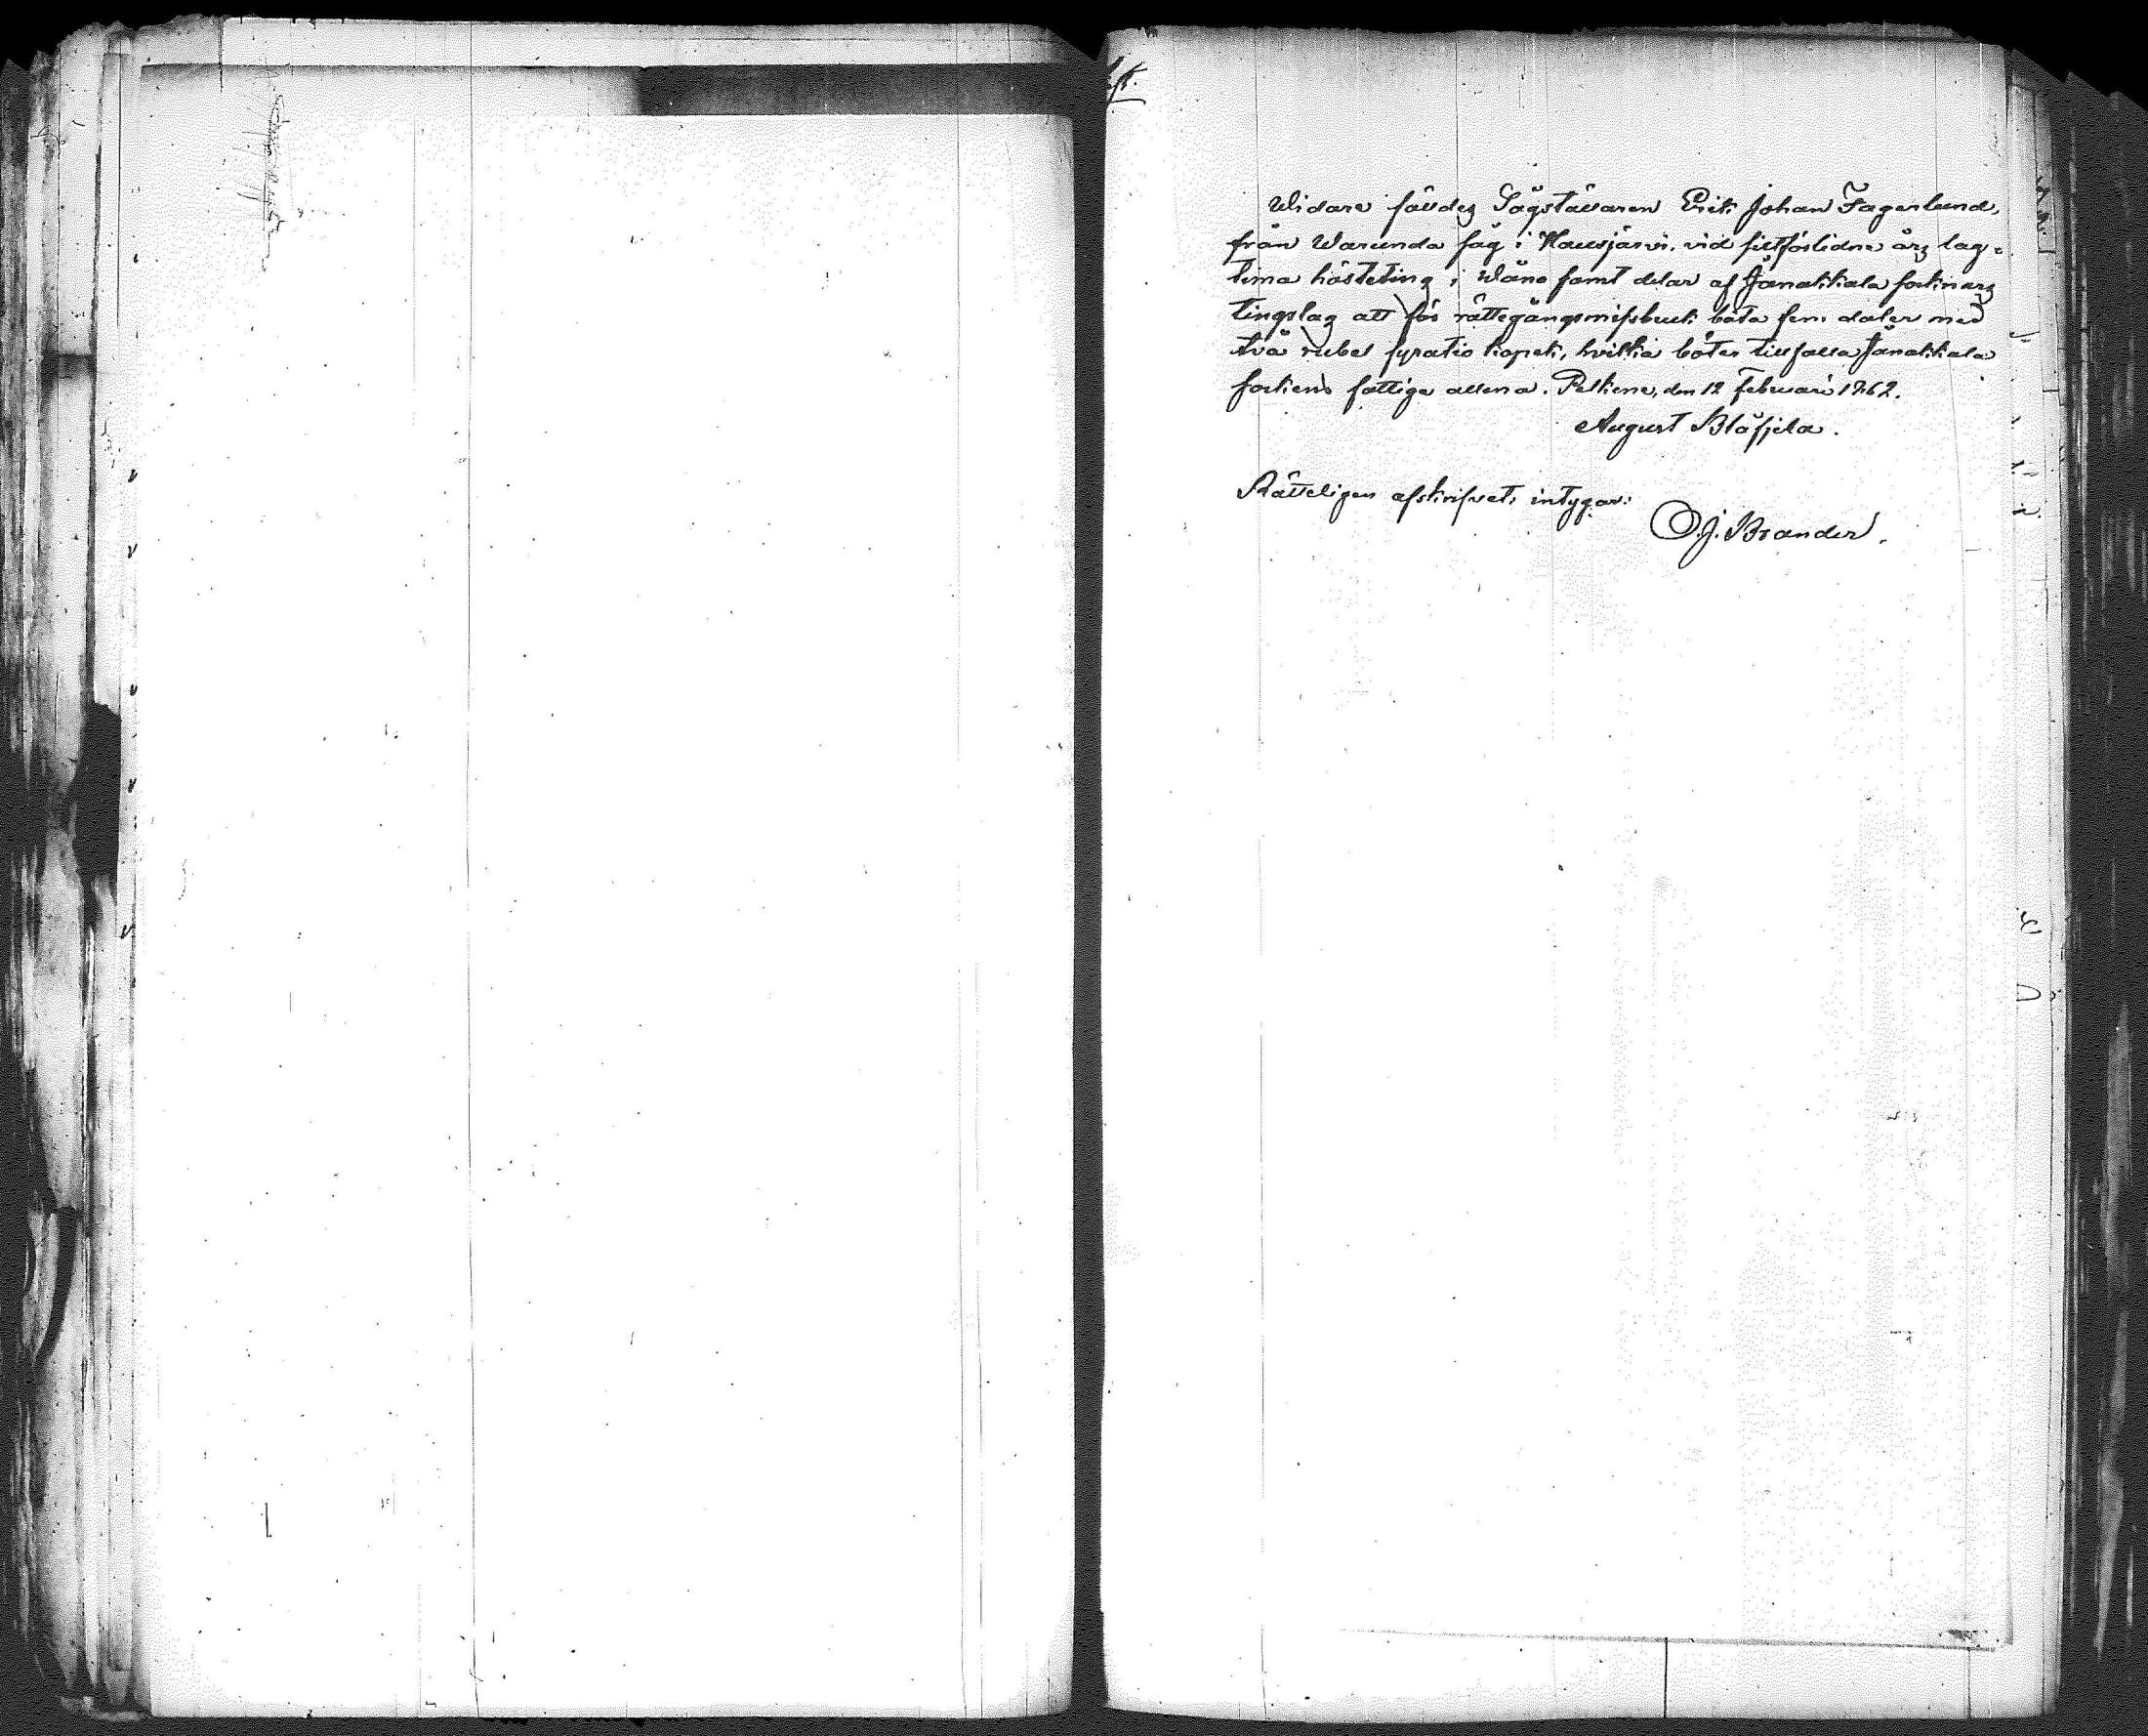 Widare fälldes Sågställaren Erik Johan Fagerlund,
från Warunda såg i Hausjärvi, vid sistförlidne års lag-
tima hösteting i Wånå samt delar af Janakkala socknars
tingslag att för rättegångsmissbruk böta fem daler med
två rubel fyratio kopek, hvilka böter tillfalla Janakkala
sockens fattige allena. Pelkene, den 12 Februari 1862.
August Blåfjeld.
Rätteligen afskrifvet, intygar:
O. J. Brander.